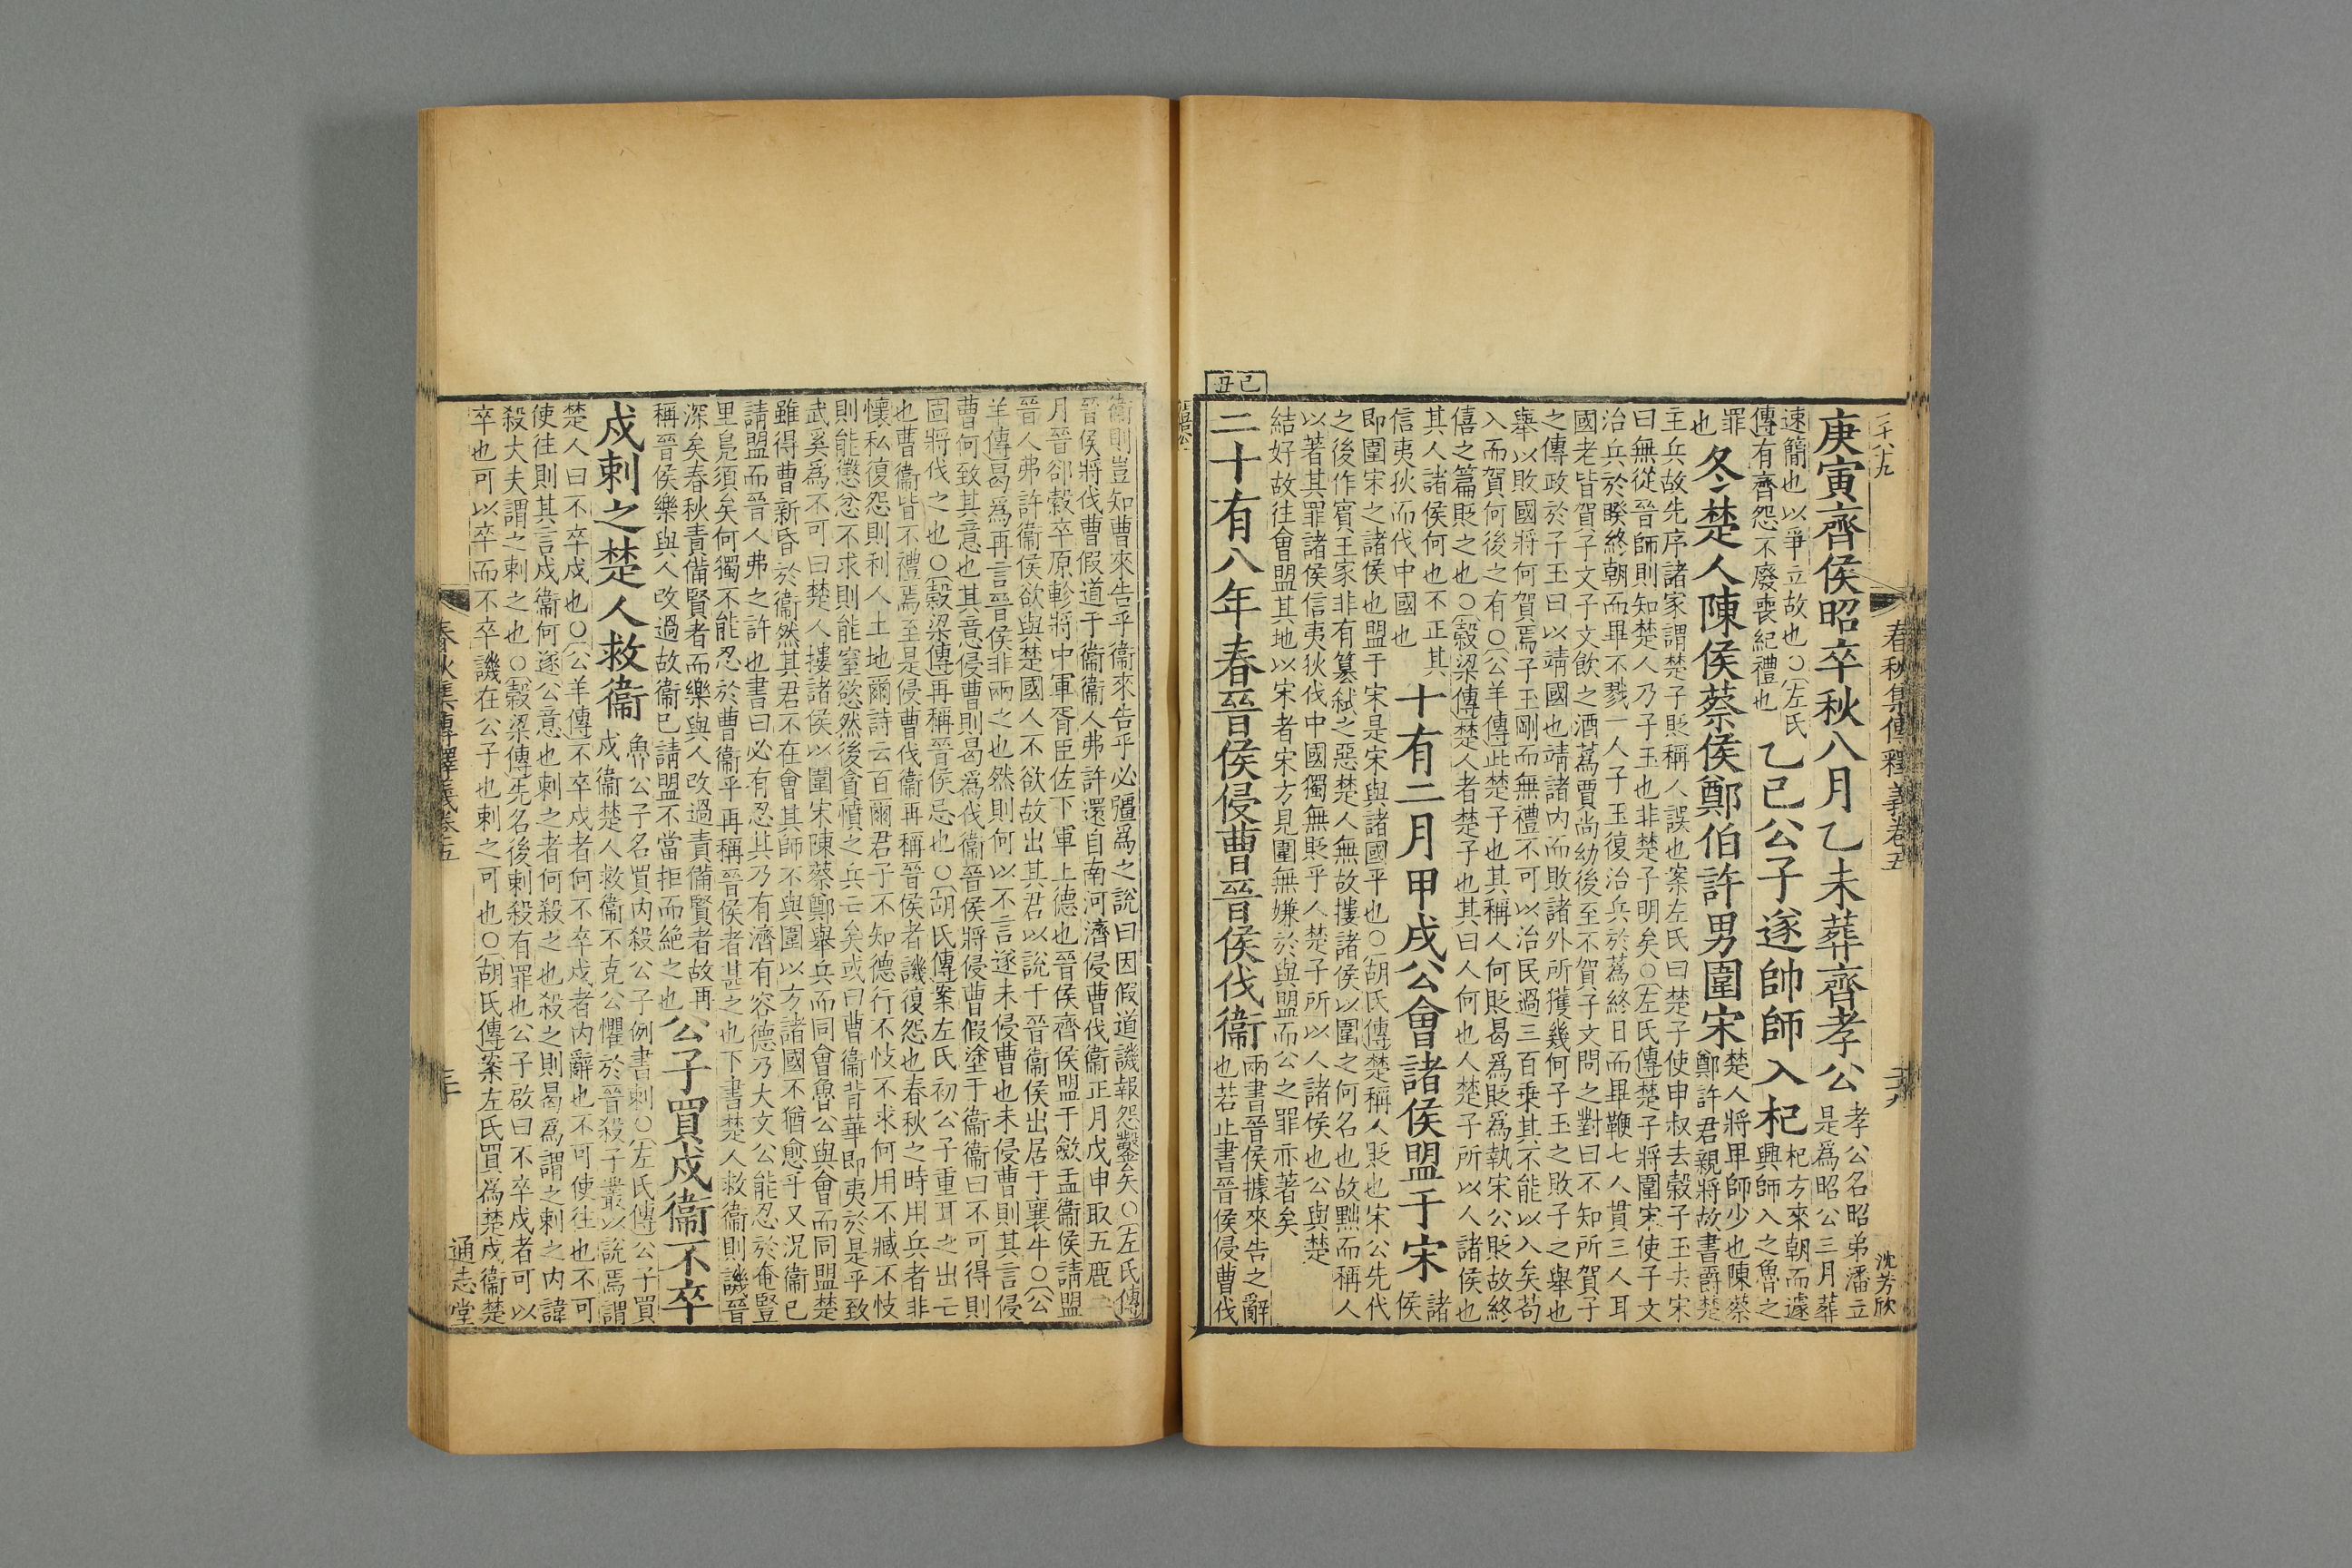 二十八
十九
春秋集傳釋義卷五
沈芳欣
庚寅齊侯昭卒秋八月乙未葬齊孝公
孝公名昭弟潘立
是爲昭公三月葬
速簡也以爭立故也○左氏
傳有齊怨不廢喪紀禮也
乙巳公子遂帥師入杞
杞方來朝而遽
興師入之魯之
罪
也
冬楚人陳侯蔡侯鄭伯許男圍宋
楚人將卑師少也陳蔡
鄭許君親將故書爵楚
主兵故先序諸家謂楚子貶稱人誤也案左氏曰楚子使申叔去穀子玉去宋
曰無從晉師則知楚人乃子玉也非楚子明矣○左氏傳楚子將圍宋使子文
治兵於睽終朝而畢不戮一人子玉復治兵於蒍終日而畢鞭七人貫三人耳
國老皆賀子文子文飲之酒蒍賈尚幼後至不賀子文問之對曰不知所賀子
之傳政於子玉曰以靖國也靖諸内而敗諸外所獲幾何子玉之敗子之舉也
舉以敗國將何賀焉子玉剛而無禮不可以治民過三百乗其不能以入矣苟
入而賀何後之有○公羊傳此楚子也其稱人何貶曷爲貶爲執宋公貶故終
僖之篇貶之也○穀梁傳楚人者楚子也其曰人何也人楚子所以人諸侯也
其人諸侯何也不正其
信夷狄而伐中國也
十有二月甲戌公會諸侯盟于宋
諸
侯
即圍宋之諸侯也盟于宋是宋與諸國平也○胡氏傳楚稱人貶也宋公先代
之後作賓王家非有篡弑之惡楚人無故摟諸侯以圍之何名也故黜而稱人
以著其罪諸侯信夷狄伐中國獨無貶乎人楚子所以人諸侯也公與楚
結好故往會盟其地以宋者宋方見圍無嫌於與盟而公之罪亦著矣
己丑
二十有八年春晉侯侵曹晉侯伐衞
兩書晉侯據來告之辭
也若止書晉侯侵曹伐
衞則豈知曹來告乎衞來告乎必彊爲之說曰因假道譏報怨鑿矣○左氏傳
晉侯將伐曹假道于衞衞人弗許還自南河濟侵曹伐衞正月戊申取五鹿二
月晉郤縠卒原軫將中軍胥臣佐下軍上德也晉侯齊侯盟于斂盂衞侯請盟
晉人弗許衞侯欲與楚國人不欲故出其君以說于晉衞侯出居于襄牛○公
羊傳曷爲再言晉侯非兩之也然則何以不言遂未侵曹也未侵曹則其言侵
曹何致其意也其意侵曹則曷爲伐衞晉侯將侵曹假塗于衞衞曰不可得則
固將伐之也○穀梁傳再稱晉侯忌也○胡氏傳案左氏初公子重耳之出亡
也曹衞皆不禮焉至是侵曹伐衞再稱晉侯者譏復怨也春秋之時用兵者非
懷私復怨則利人土地爾詩云百爾君子不知德行不忮不求何用不臧不忮
則能懲忿不求則能窒慾然後貪憤之兵亡矣或曰曹衞背華即夷於是乎致
武奚爲不可曰楚人摟諸侯以圍宋陳蔡鄭舉兵而同會魯公與會而同盟楚
雖得曹新昏於衞然其君不在會其師不與圍以方諸國不猶愈乎又況衞已
請盟而晉人弗之許也書曰必有忍其乃有濟有容德乃大文公能忍於奄豎
里鳧須矣何獨不能忍於曹衞乎再稱晉侯者甚之也下書楚人救衞則譏晉
深矣春秋責備賢者而樂與人改過責備賢者故再
稱晉侯樂與人改過故衞已請盟不當拒而絶之也
公子買戍衞不卒
戍刺之楚人救衞
魯公子名買内殺公子例書刺○左氏傳公子買
戍衞楚人救衞不克公懼於晉殺子叢以說焉謂
楚人曰不卒戍也○公羊傳不卒戍者何不卒戍者内辭也不可使往也不可
使往則其言戍衞何遂公意也刺之者何殺之也殺之則曷爲謂之刺之内諱
殺大夫謂之刺之也○穀梁傳先名後刺殺有罪也公子啟曰不卒戍者可以
卒也可以卒而不卒譏在公子也刺之可也○胡氏傳案左氏買爲楚戍衞楚
春秋集傳釋義卷五
三十
通志堂